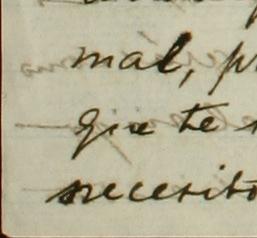 mal, p
que te
necesito